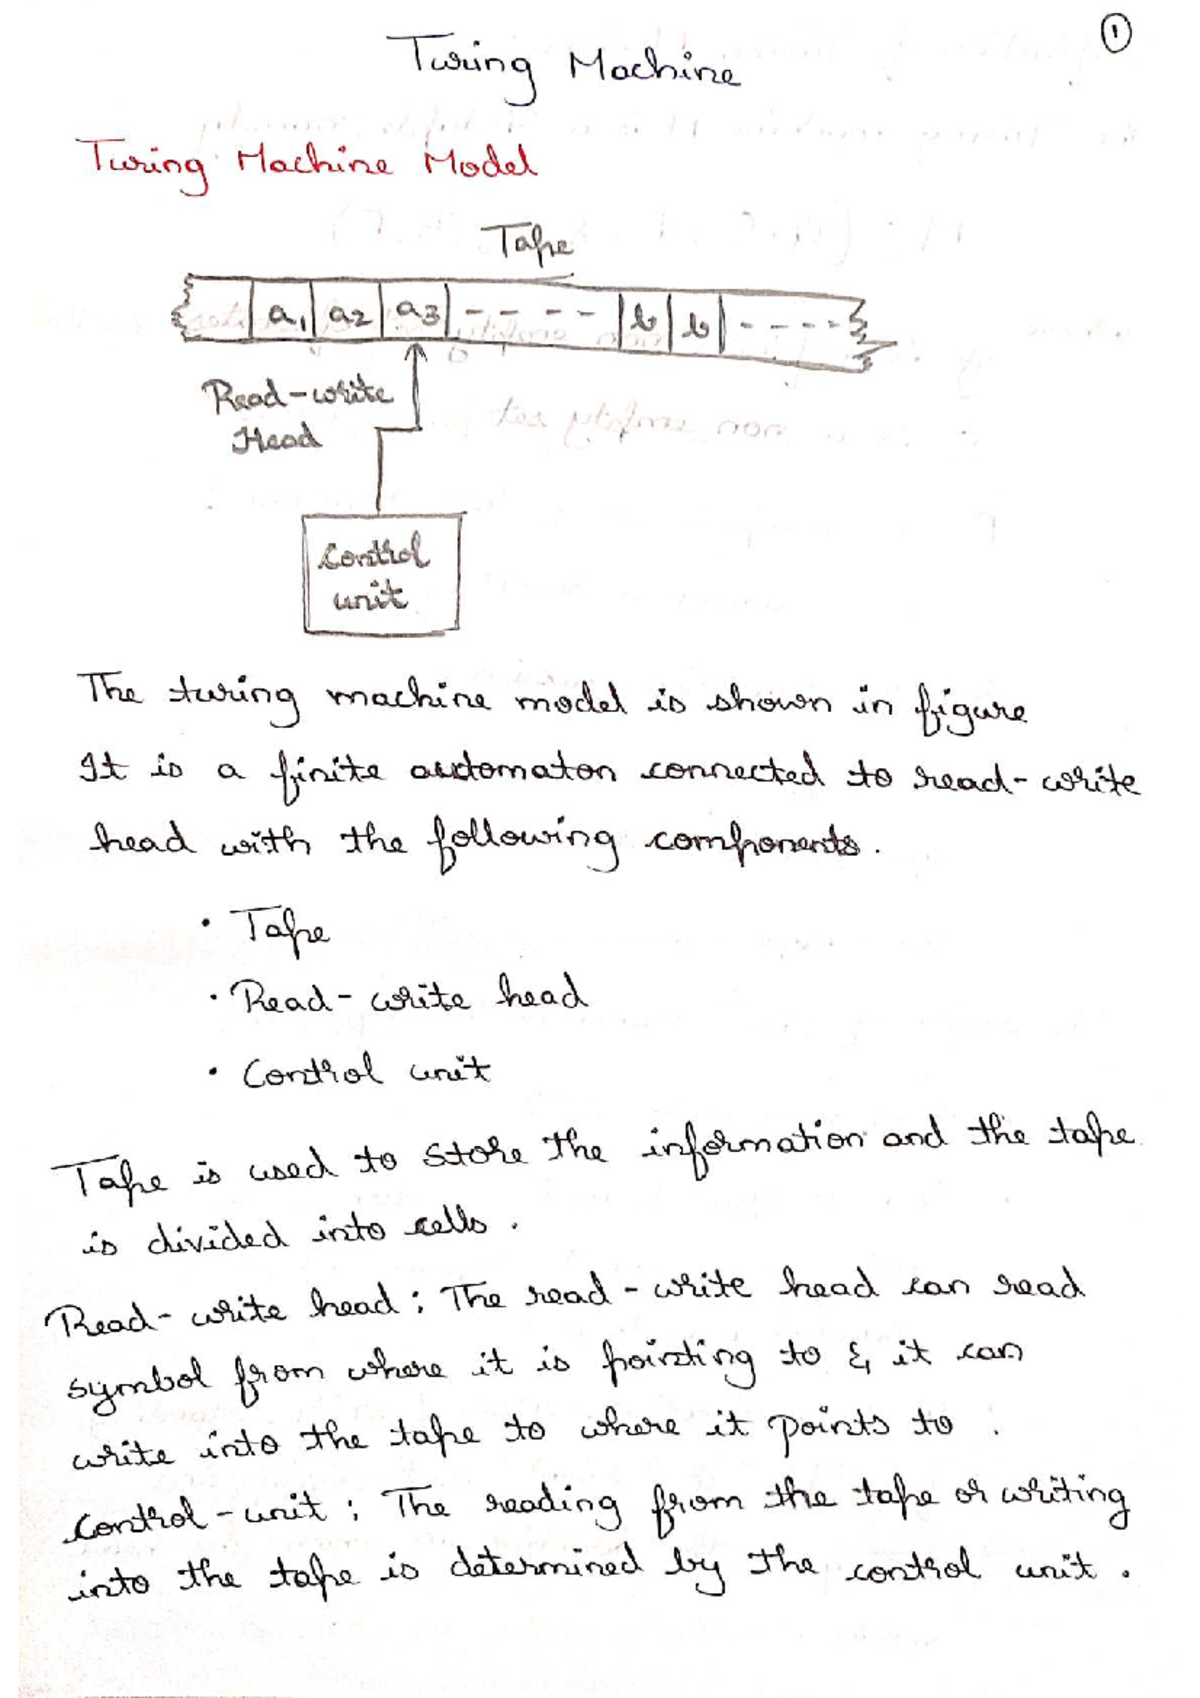 1
Turing Machine
Turing Machine Model
Tape
a1 a2 a3 - - - - - b b - - - - -
Read-write
Head
Control
unit
The turing machine model is shown in figure
It is a finite automaton connected to read-write
head with the following components.
• Tape
• Read-write head
• Control unit
Tape is used to store the information and the tape
is divided into cells.
Read-write head : The read-write head can read
symbol from where it is pointing to & it can
write into the tape to where it points to .
Control-unit : The reading from the tape or writing
into the tape is determined by the control unit.